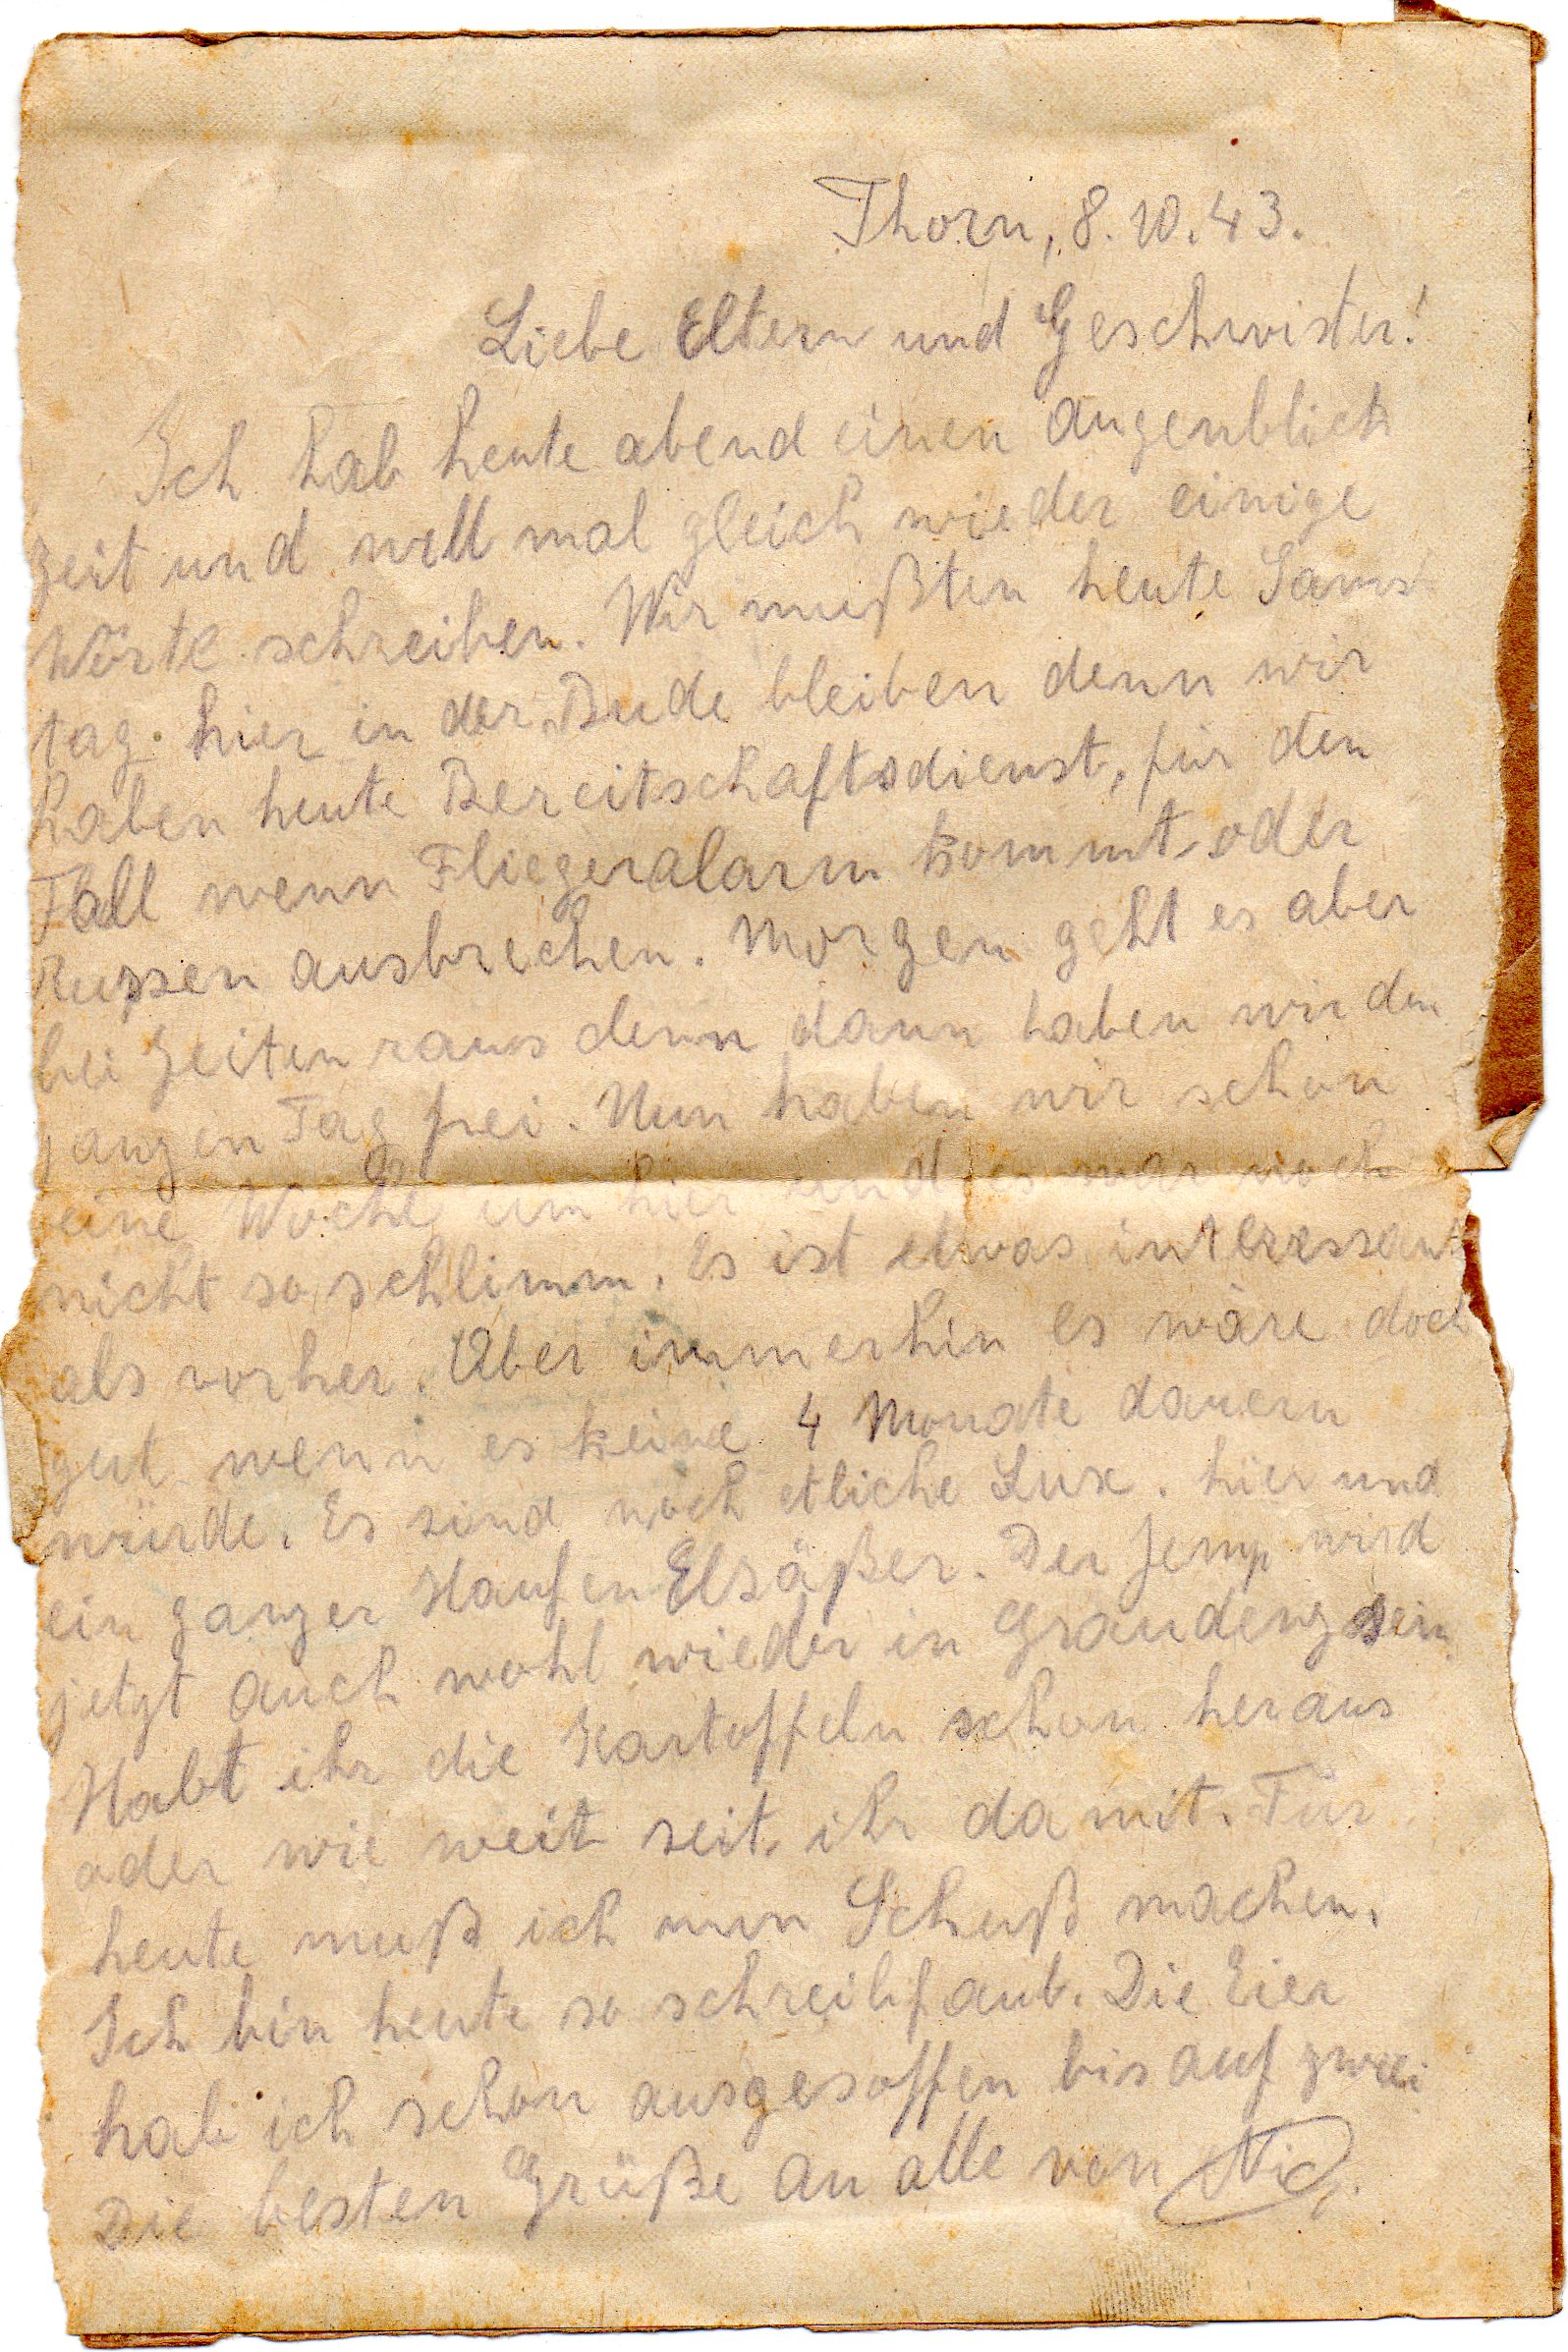 Thorn, 8.10.43.
Liebe Eltern und Geschwister!
Ich hab heute abend einen augenblick
zeit und will mal gleich wieder einige
Wörte schreiben. Wir mußten heute Sams
tag hier in der Bude bleiben denn wir
haben heute Bereitschaftsdienst, für den
Fall wenn Fliegeralarm kommt oder
Russen ausbrechen. Morgen geht es aber
bei zeiten raus denn dann haben wir den
ganzen Tag frei. Nun haben wir schon
eine Woche um hier und es war noch
nicht so schlimm. Es ist etwas interessant
als vorher. Aber immerhin es wäre doch
gut wenn es keine 4 Monate dauern
würde. Es sind noch etliche Lux. hier und
ein ganzer Haufen Elsäßer. Der Jemp wird
jetzt auch wohl wieder in Graudenz sein
Habt ihr die Kartoffeln schon heraus
oder wie weit seit ihr damit. Für
heute muß ich nun Schuß machen.
Ich bin heute so schreibfaub. Die Eier
hab ich schon ausgesoffen bis auf zwei
Die besten Grüße an alle von Nic.